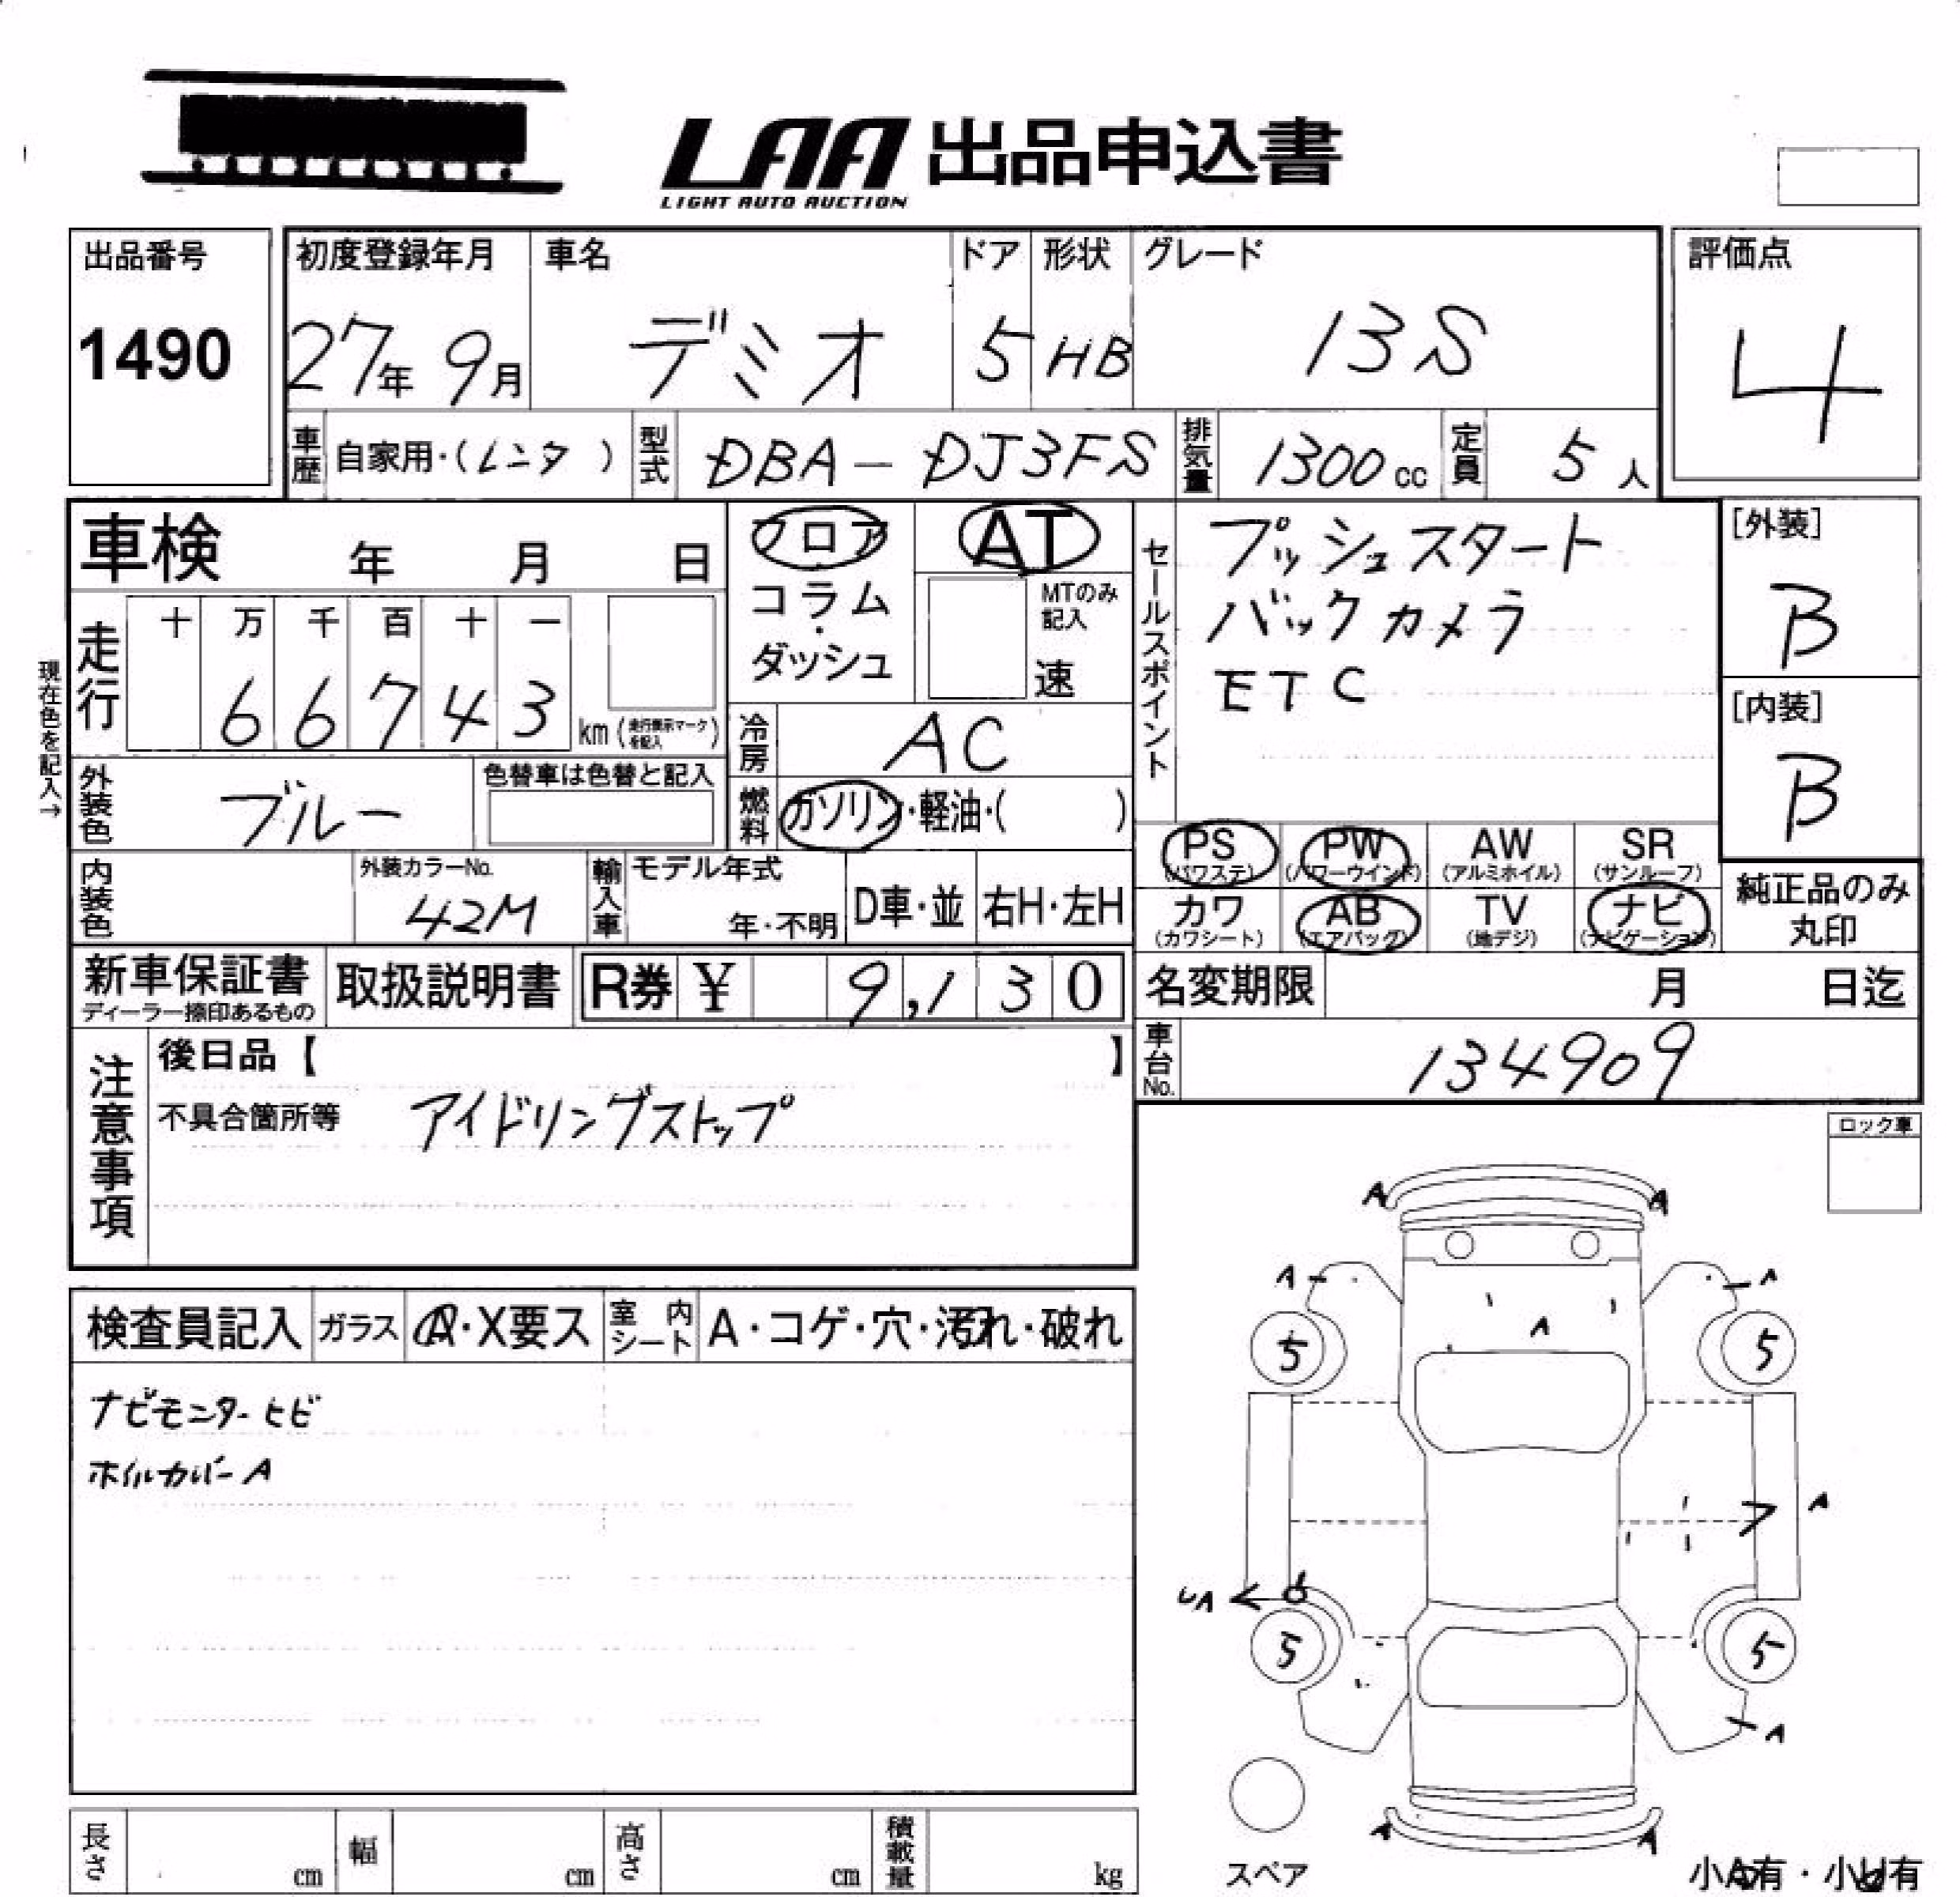 LAA 出品申込書
LIGHT AUTO AUCTION
出品番号
1490
初度登録年月
27年 9月
車名
デミオ
ドア
5
形状
HB
グレード
13S
評価点
4
車歴 自家用・(レンタ)
型式 DBA-DJ3FS
排気量 1300cc
定員 5人
車検 年 月 日
フロア・コラム・ダッシュ
AT
MTのみ記入
速
セールスポイント
プッシュスタート
バックカメラ
ETC
[外装]
B
[内装]
B
現在色を記入→
走行
十 万 千 百 十 一
6 6 7 4 3 km (走行表示マークを記入)
冷房 AC
外装色 ブルー
色替車は色替と記入
燃料 ガソリン・軽油・( )
PS (パワステ)
PW (パワーウインド)
AW (アルミホイル)
SR (サンルーフ)
カワ (カワシート)
AB (エアバッグ)
TV (地デジ)
ナビ (ナビゲーション)
純正品のみ丸印
内装色
外装カラーNo.
42M
輸入車
モデル年式
年・不明
D車・並
右H・左H
新車保証書
ディーラー捺印あるもの
取扱説明書
R券 ¥ 9,130
名変期限 月 日迄
車台No. 134909
注意事項
後日品【 】
不具合箇所等 アイドリングストップ
ロック車
検査員記入
ガラス A・X要ス
室内シート A・コゲ・穴・汚れ・破れ
ナビモニターヒビ
ホイルカバーA
A A
A A
A
5 5
A
UA
5 5
A
A A
スペア
小A有・小U有
長さ cm
幅 cm
高さ cm
積載量 kg